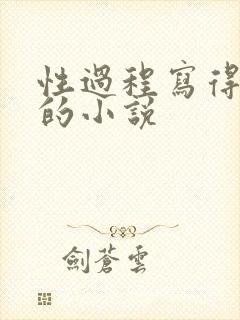 性過程寫得
的小說
劍蒼雲